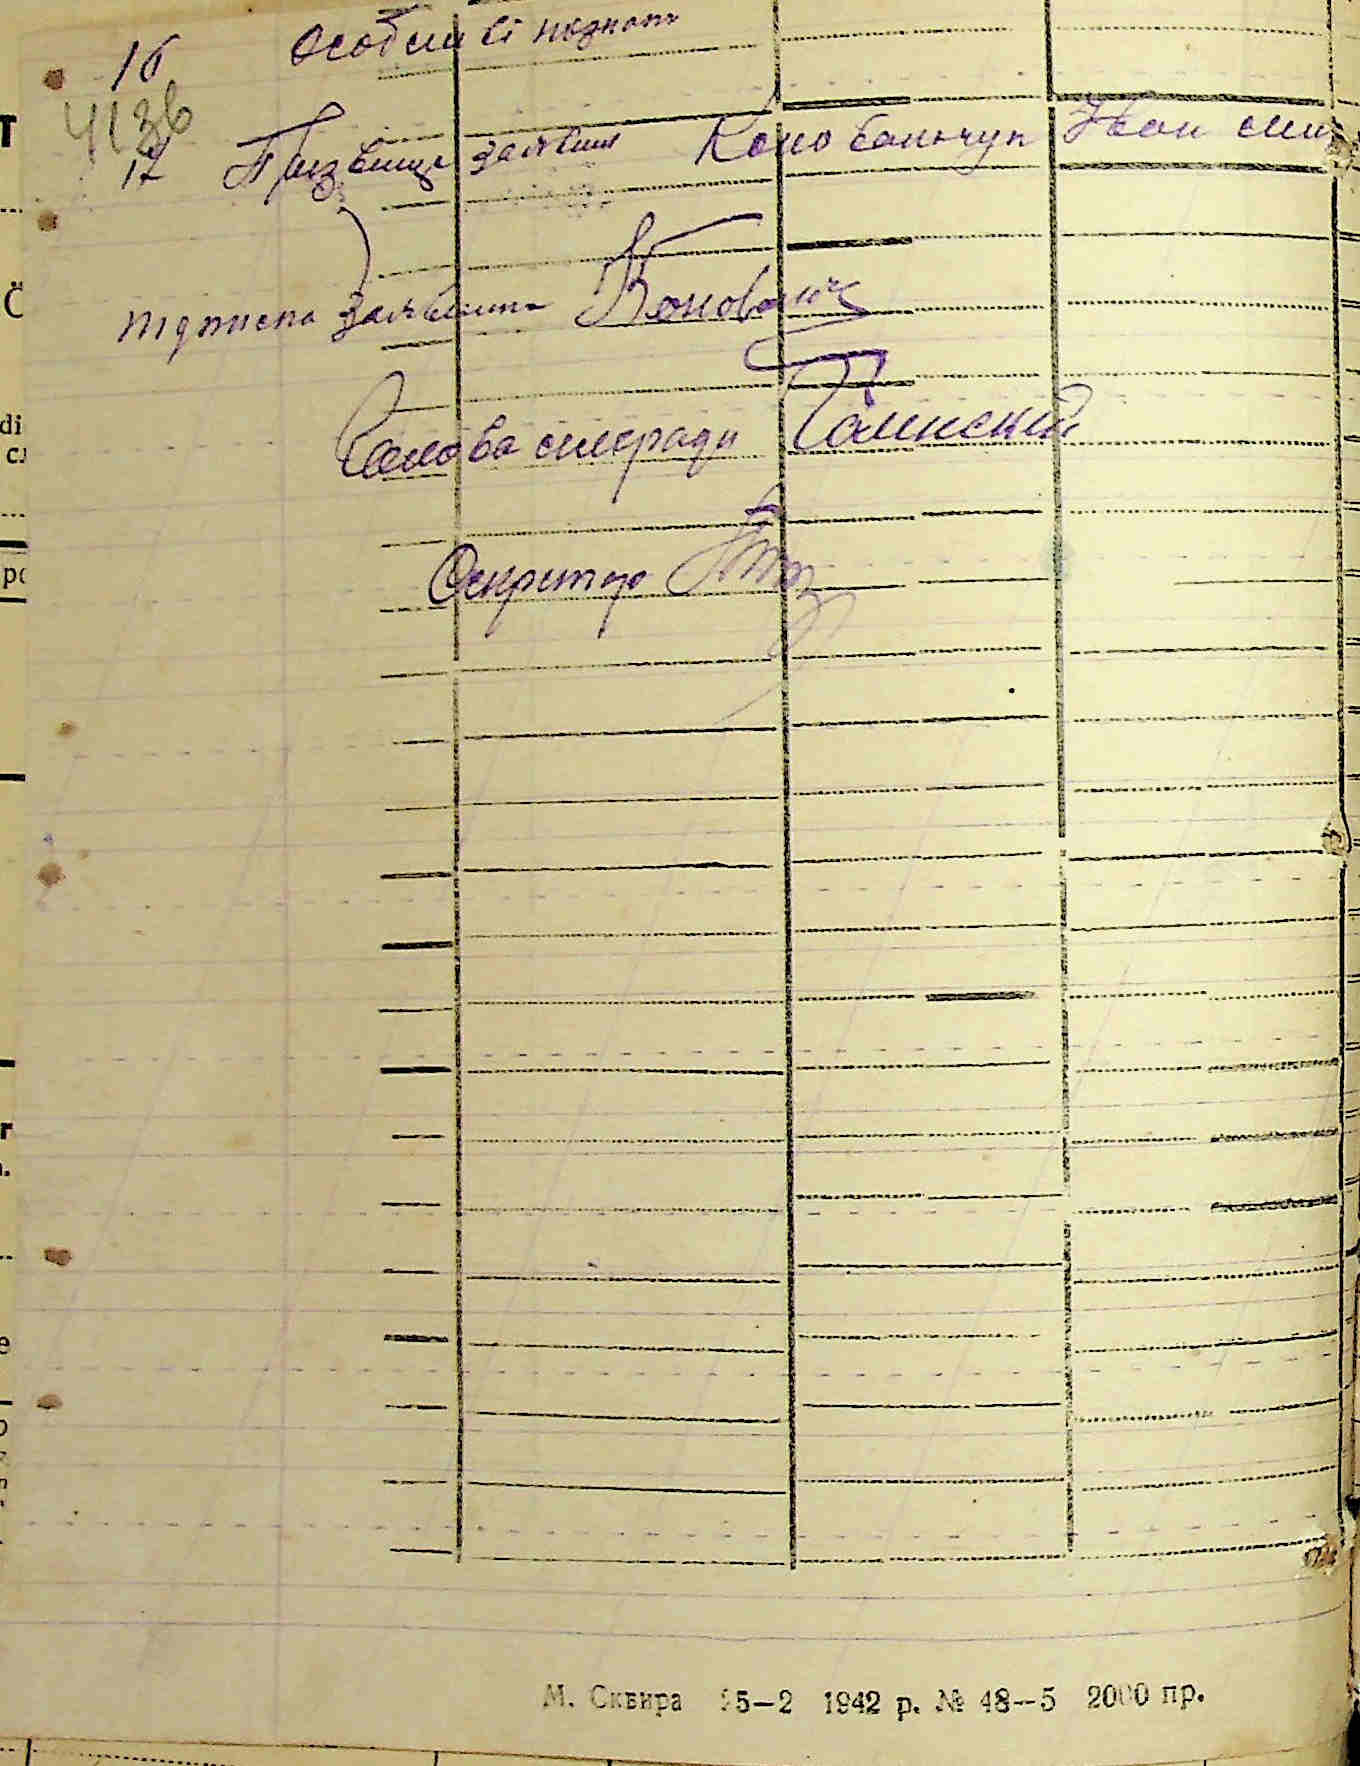 16 Особливі познат
413б
17 Призвище заявника Коновальчук Іван
Підписка заявника Коновальчук
Голова сельради Галинский
Секретар
М. Сквира 25–2 1942 р. № 48--5 2000 пр.